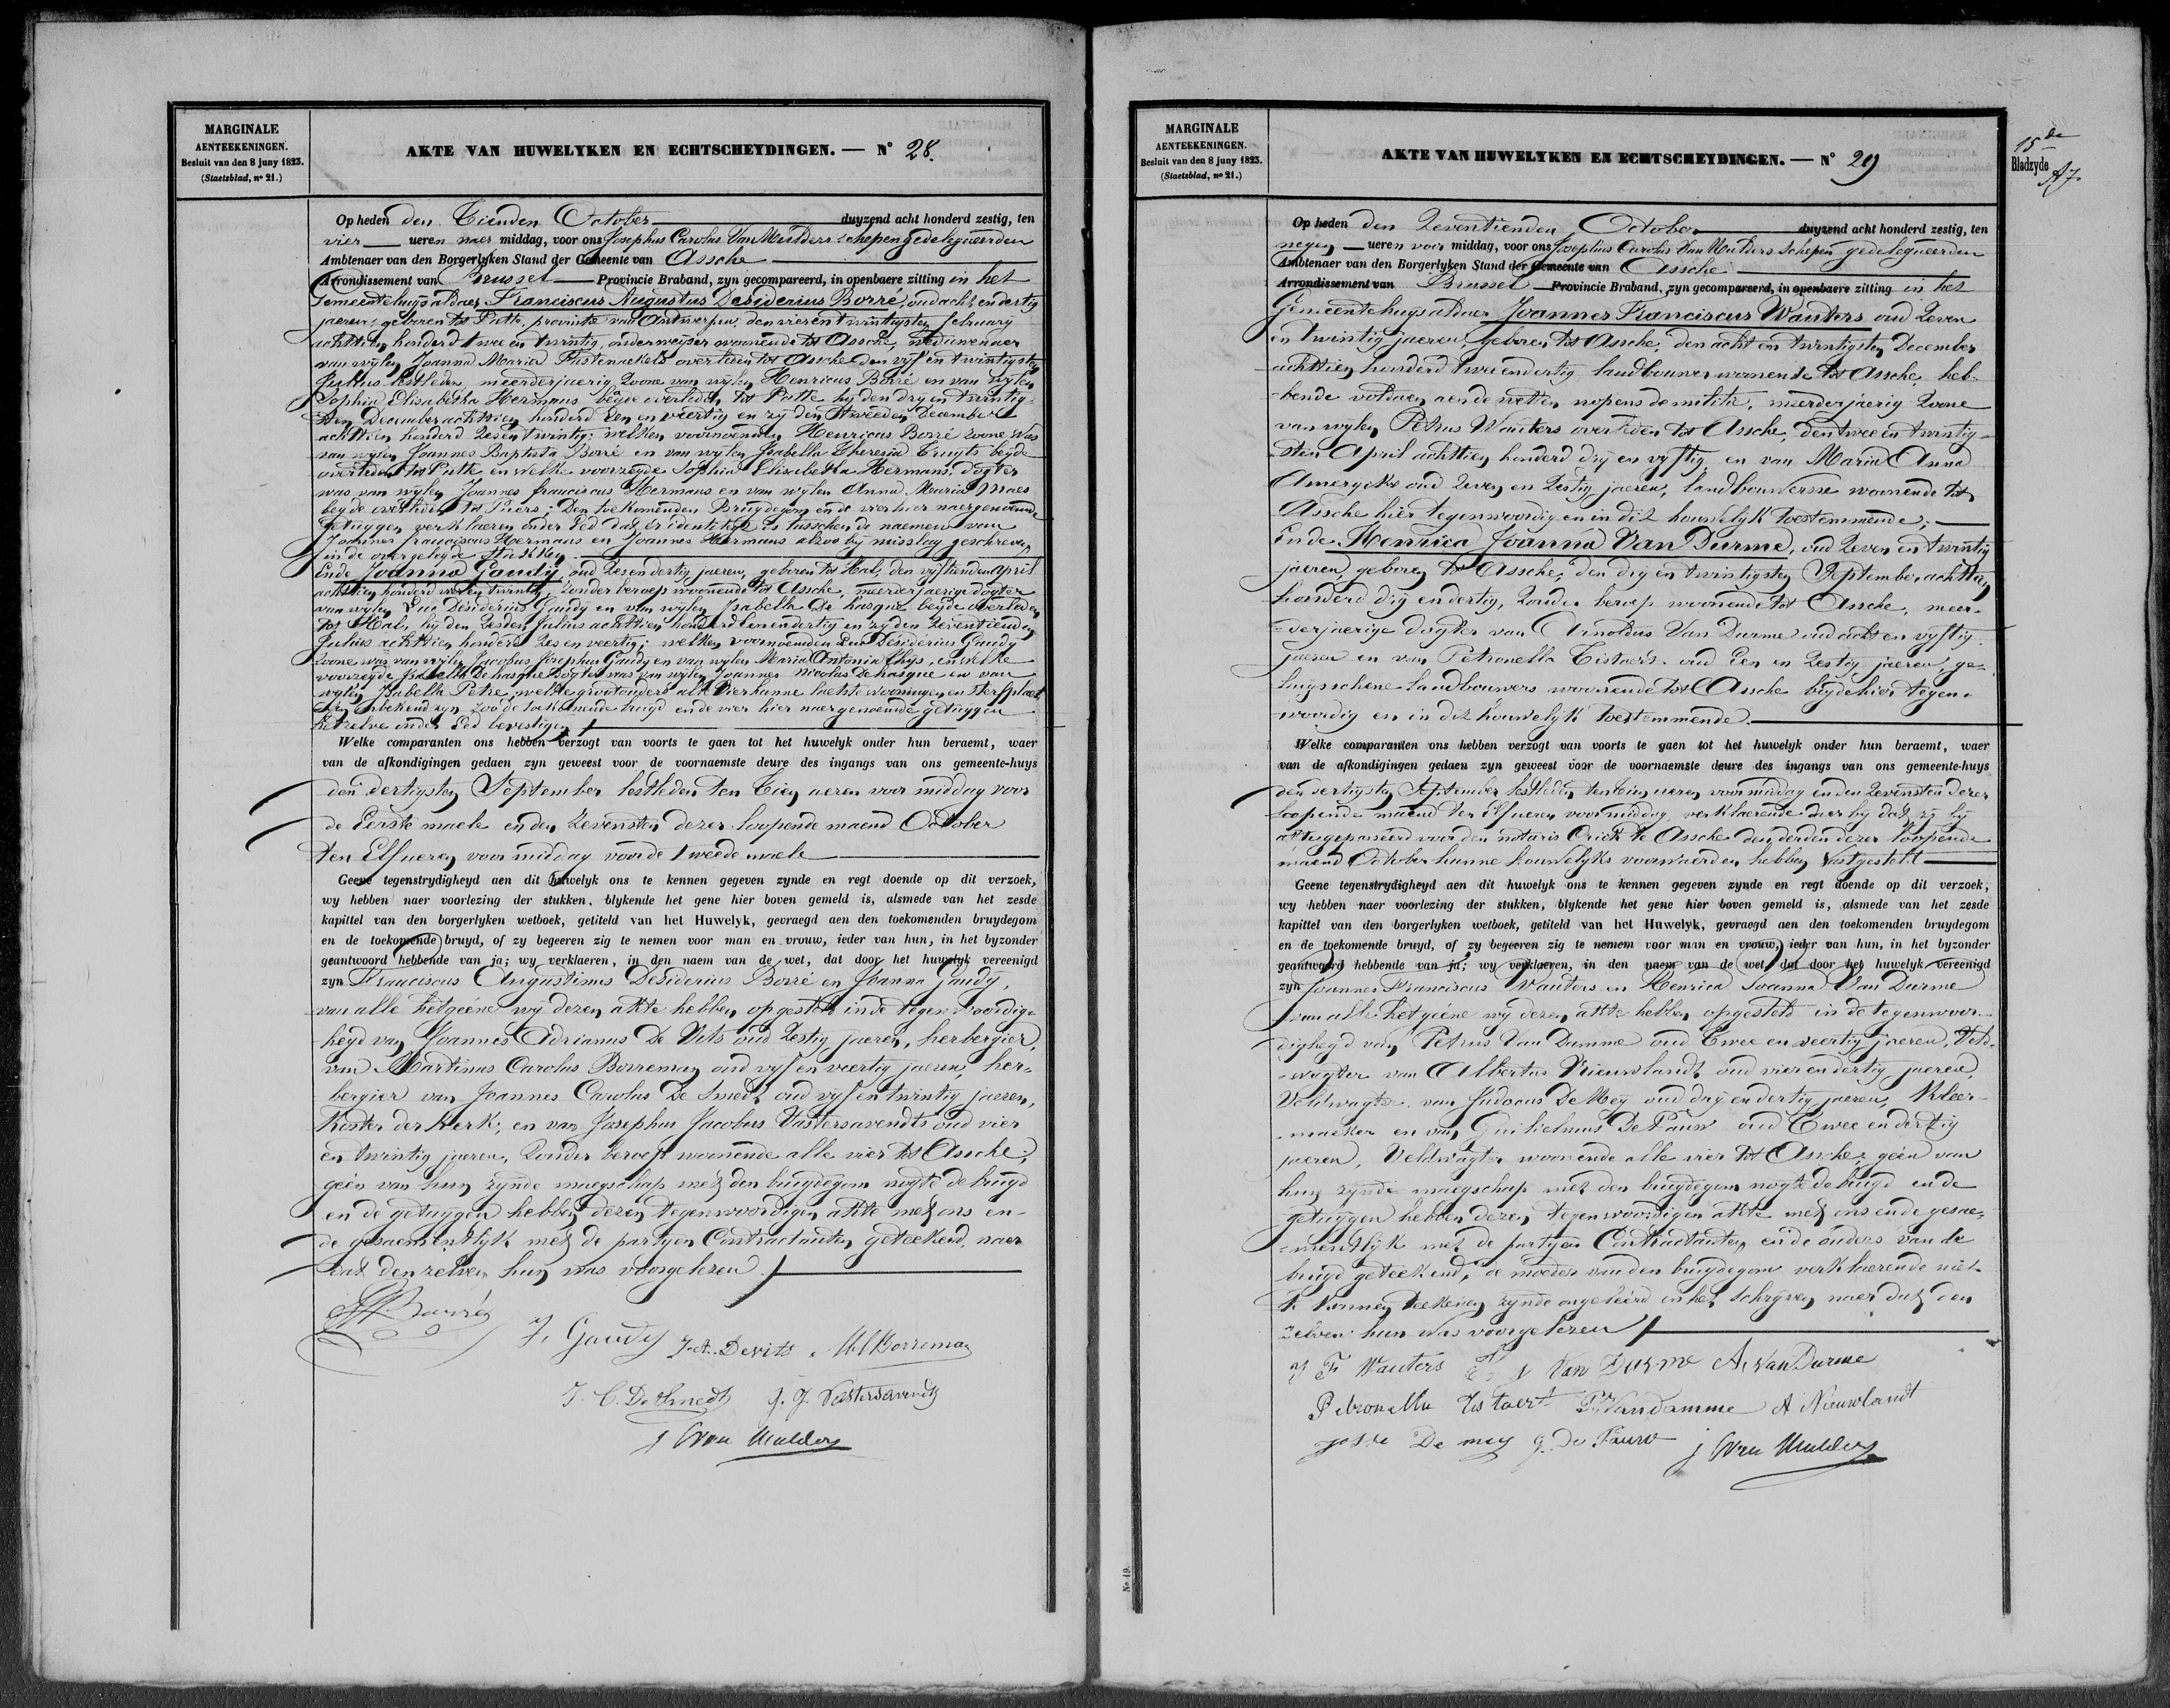 MARGINALE
AENTEEKENINGEN.
Besluit van den 8 juny 1823.
(Staetsblad, no 21.)
AKTE VAN HUWELYKEN EN ECHTSCHEYDINGEN. — N° 28.
Op heden den Tienden October duyzend acht honderd zestig, ten
vier ueren naer middag, voor ons Josephus Carolus Van Mulders schepen gedelegueerden
Ambtenaer van den Borgerlyken Stand der Gemeente van Assche
Arrondissement van Brussel Provincie Braband, zyn gecompareerd, in openbaere zitting in het
Gemeentehuys aldaer Franciscus Augustus Desiderius Borré, oud acht en dertig
jaeren, geboren tot Putte, provintie van Antwerpen, den vier en twintigsten february
achttien honderd twee en twintig, onderwyzer woonende tot Assche, weduwenaer
van wylen Joanna Maria Fastenaekels overleden tot Assche den vyf en twintigsten
Julius lestleden, meerderjaerig Zoone van wylen Henricus Borré en van wylen
Sophia Elisabetha Hermans beyde overleden tot Putte hy den dry en twintig-
sten December achttien honderd Een en veertig en zy den tweeden December
achttien honderd Zes en twintig; welken voornoemden Henricus Borré zoone was
van wylen Joannes Baptista Borré en van wylen Isabella Theresia Truyts beyde
overleden tot Putte en welke voorzeyde Sophia Elisabetha Hermans, dogter
was van wylen Joannes franciscus Hermans en van wylen Anna Maria Maes
beyde overleden tot Puers; Den toekomenden Bruydegom en de vier hier naergenoemde
Getuygen verklaeren onder Eed dat er identiteyt is tusschen de naemen van
Joannes franciscus Hermans en Joannes Hermans alzoo by misslag geschreven
in de overgelegde stukken.
Ende Joanna Gaudy, oud Zes en dertig jaeren, geboren tot Hal, den vyftienden April
achttien honderd vier en twintig, Zonder beroep woonende tot Assche, meerderjaerige dogter
van wylen Luc Désidérius Gaudy en van wylen Isabella De hasque beyde overleden
tot Hal, hy den Zesden Julius achttien honderd Een en dertig en zy den Zeventienden
Julius achttien honderd Zes en veertig; welken voornoemden Luc Désidérius Gaudy
Zoone was van wylen Jacobus Josephus Gaudy en van wylen Maria Antonia Thys, en welke
voorzeyde Isabella Dehasque Dogter was van wylen Joannes Nicolas Dehasque en van
wylen Isabella Petre, welke grootouders alle vier hunne laetste wooningen en sterfplaet
sen onbekend zyn zoo de toekomende bruyd en de vier hier naergenoemde getuygen
hetzelve onder Eed bevestigen
Welke comparanten ons hebben verzogt van voorts te gaen tot het huwelyk onder hun beraemt, waer
van de afkondigingen gedaen zyn geweest voor de voornaemste deure des ingangs van ons gemeente-huys
den dertigsten September lestleden ten Tien ueren voor middag voor
de Eerste maele en den Zevensten dezer loopende maend October
ten Elf ueren voor middag voor de tweede maele
Geene tegenstrydigheyd aen dit huwelyk ons te kennen gegeven zynde en regt doende op dit verzoek,
wy hebben naer voorlezing der stukken, blykende het gene hier boven gemeld is, alsmede van het zesde
kapittel van den borgerlyken wetboek, getiteld van het Huwelyk, gevraegd aen den toekomenden bruydegom
en de toekomende bruyd, of zy begeeren zig te nemen voor man en vrouw, ieder van hun, in het byzonder
geantwoord hebbende van ja; wy verklaeren, in den naem van de wet, dat door het huwelyk vereenigd
zyn Franciscus Augustinus Desiderius Borré en Joanna Gaudy,
van alle hetgeéne wy dezen akte hebben opgesteld in de tegenwoordig-
heyd van Joannes Adrianus De Vits oud Zestig jaeren, herbergier,
van Martinus Carolus Borreman oud vyf en veertig jaeren, her-
bergier van Joannes Carolus De Smedt oud vyf en twintig jaeren,
Koster der Kerk, en van Josephus Jacobus Vastersavendts oud vier
en twintig jaeren, Zonder beroep woonende alle vier tot Assche;
geén van hun zynde maegschap met den bruydegom nogte de bruyd
en de getuygen hebben dezen tegenwoordigen akte met ons en-
de gesaementlyk met de partyen Contractanten geteekend, naer
dat denzelven hun was voorgelezen
J. Gaudy J. A. Devits M C Borreman
J. C. De Smedt J. J. Vastersavendts
J C Van Mulders
MARGINALE
AENTEEKENINGEN.
Besluit van den 8 juny 1823.
(Staetsblad, no 21.)
AKTE VAN HUWELYKEN EN ECHTSCHEYDINGEN. — N° 29
15de
Bladzyde
Op heden den Zeventienden October duyzend acht honderd zestig, ten
negen ueren voor middag, voor ons Josephus Carolus Van Mulders Schepen gedelegueerden
Ambtenaer van den Borgerlyken Stand der Gemeente van Assche
Arrondissement van Brussel Provincie Braband, zyn gecompareerd, in openbaere zitting in het
Gemeentehuys aldaer Joannes Franciscus Wauters oud Zeven
en twintig jaeren, geboren tot Assche, den acht en twintigsten December
achttien honderd twee en dertig landbouwer woonende tot Assche, heb-
bende voldaen aen de wetten nopens de militie, meerderjaerig Zoone
van wylen Petrus Wauters overleden tot Assche, den twee en twintig-
sten April achttien honderd dry en vyftig, en van Maria Anna
Amerycke oud Zeven en Zestig jaeren, landbouwersse woonende tot
Assche hier tegenwoordig en in dit houwelyk toestemmende;
Ende Henrica Joanna Van Durme, oud Zeven en twintig
jaeren, geboren tot Assche, den dry en twintigsten September achttien
honderd dry en dertig, Zonder beroep woonende tot Assche, meer-
derjaerige dogter van Arnoldus Van Durme oud acht en vyftig
jaeren en van Petronella Tistaert oud Een en Zestig jaeren, ge-
huysschene landbouwers woonende tot Assche beyde hier tegen-
woordig en in dit houwelyk toestemmende.
Welke comparanten ons hebben verzogt van voorts te gaen tot het huwelyk onder hun beraemt, waer
van de afkondigingen gedaen zyn geweest voor de voornaemste deure des ingangs van ons gemeente-huys
den dertigsten September lestleden ten Tien ueren voor middag en den Zevensten dezer
loopende maend ten Elf ueren voor middag, verklaerende hier by dat zy by
akte gepasseerd voor den notaris Crick te Assche den derden dezer loopende
maend October hunne houwelyks voorwaerden hebben vastgesteld
Geene tegenstrydigheyd aen dit huwelyk ons te kennen gegeven zynde en regt doende op dit verzoek,
wy hebben naer voorlezing der stukken, blykende het gene hier boven gemeld is, alsmede van het zesde
kapittel van den borgerlyken wetboek, getiteld van het Huwelyk, gevraegd aen den toekomenden bruydegom
en de toekomende bruyd, of zy begeeren zig te nemem voor man en vrouw, ieder van hun, in het byzonder
geantwoord hebbende van ja; wy verklaeren, in den naem van de wet, dat door het huwelyk vereenigd
zyn Joannes Franciscus Wauters en Henrica Joanna Van Durme
van alle hetgeéne wy dezen akte hebben opgesteld in de tegenwoor-
digheyd van Petrus Van Damme oud Twee en veertig jaeren, Veld-
wagter van Albertus Nieuwlandt oud vier en dertig jaeren,
Veldwagter, van Judocus De Mey oud dry en dertig jaeren, Kleer-
maeker en van Guilielmus De Pauw oud Twee en dertig
jaeren, Veldwagter woonende alle vier tot Assche; geén van
hun zynde maegschap met den bruydegom nogte de bruyd en de
getuygen hebben dezen tegenwoordigen akte met ons ende gesae-
mentlyk met de partyen Contractanten en de ouders van de
bruyd geteekend, de moeder van den bruydegom verklaerende niet
te konnen teekenen zynde ongeleerd in het schryven naer dat den
zelven hun was voorgelezen
J F Wauters Van Durme A. Van Durme
Petronella Tistaert P. Vandamme A Nieuwlandt
De mey g. De Pauw J C Van Mulders
No 19.